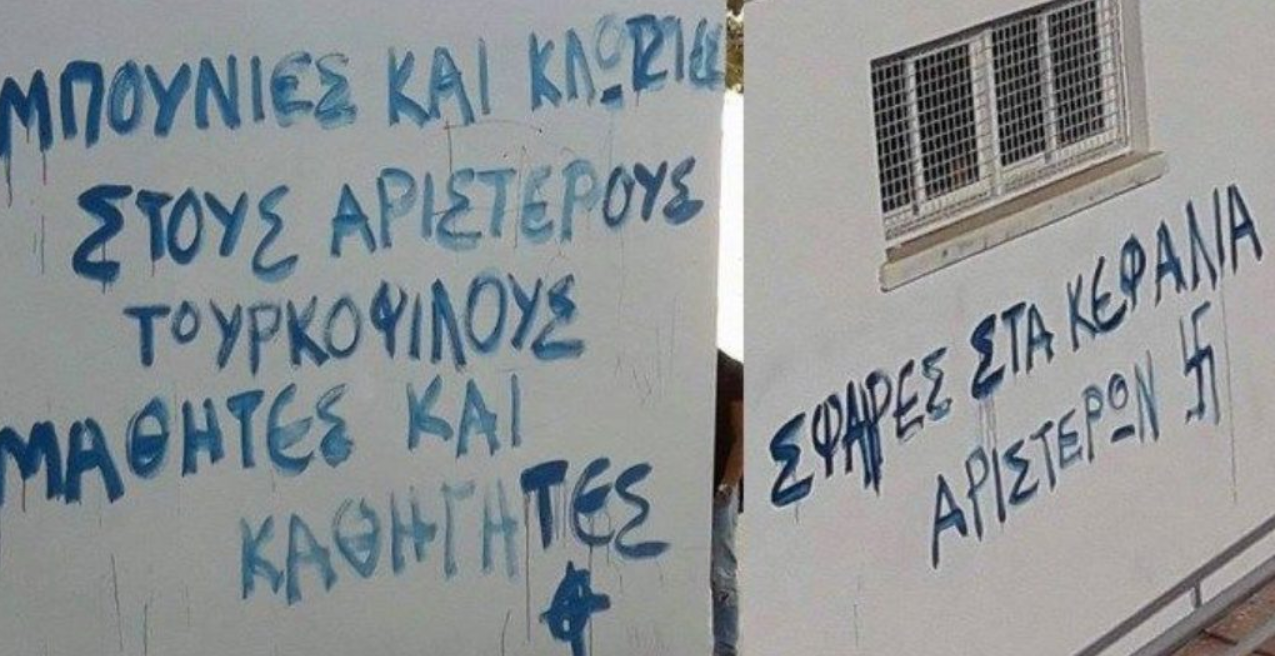 ΜΠΟΥΝΙΕΣ ΚΑΙ ΚΛΩΤΣΙΕΣ
ΣΤΟΥΣ ΑΡΙΣΤΕΡΟΥΣ
ΤΟΥΡΚΟΦΙΛΟΥΣ
ΜΑΘΗΤΕΣ ΚΑΙ
ΚΑΘΗΓΗΤΕΣ
ΣΦΑΙΡΕΣ ΣΤΑ ΚΕΦΑΛΙΑ
ΑΡΙΣΤΕΡΩΝ